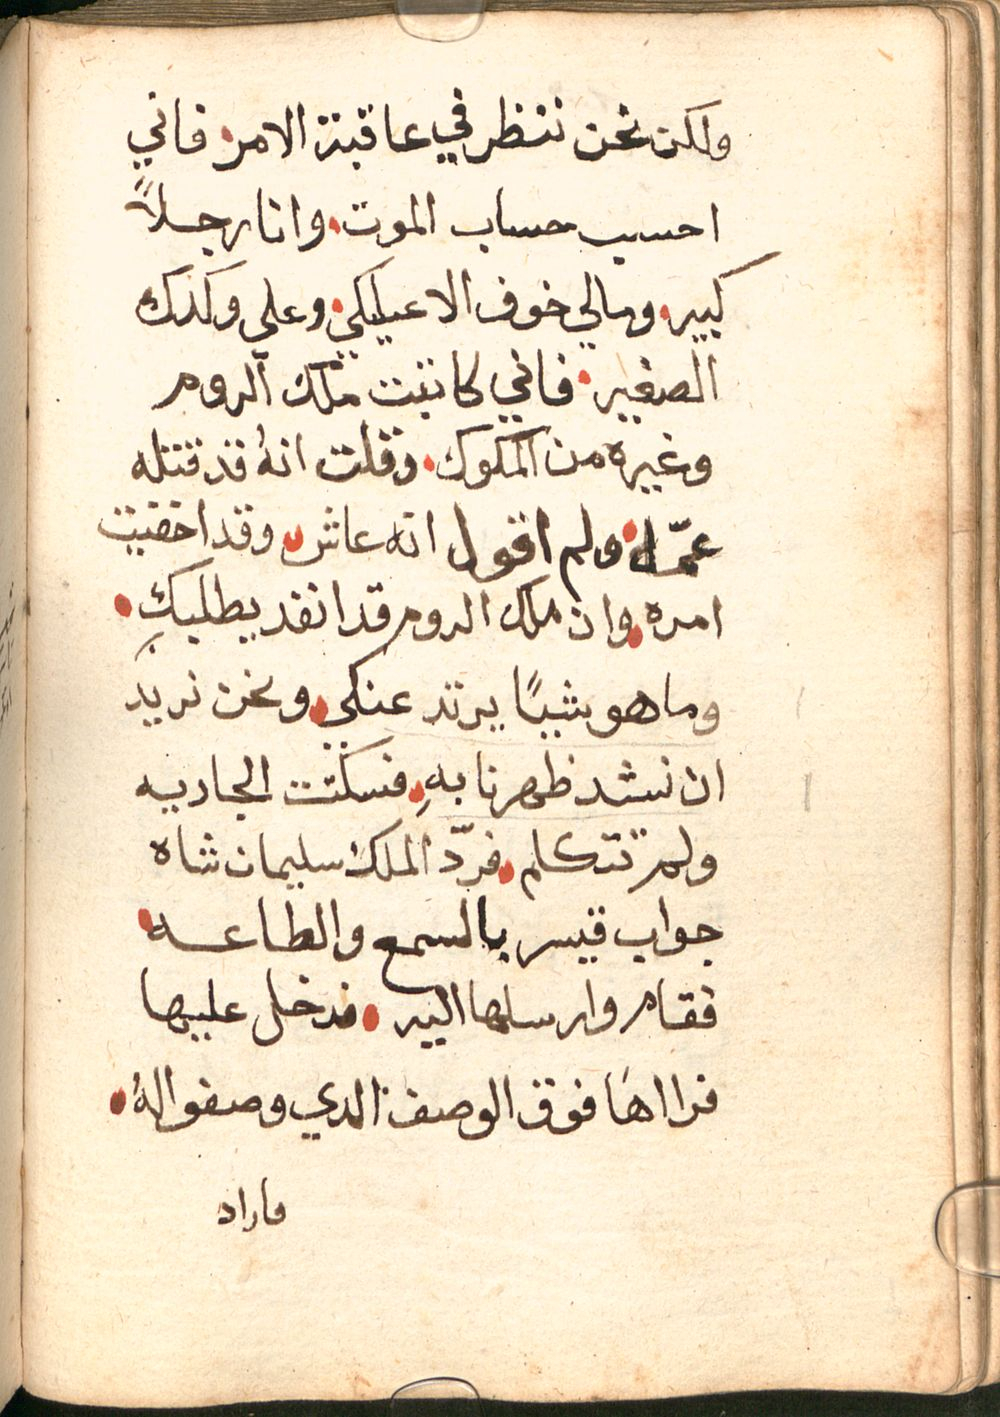 ولكن نحن ننظر في عاقبة الامر فاني
احسب حساب الموت وانا رجلاً
كبير ومالي خوف الا عليكي وعلى ولدك
الصغير فاني كاتبت ملك الروم
وغيره من الملوك وقلت انهُ قد قتله
عمّه ولم اقول انه عاش وقد اخفيت
امره وان ملك الروم قد انفد يطلبك
وما هو شيًا يرتد عنكي ونحن نريد
ان نشد ظهرنا بهِ فسكتت الجاريه
ولم تتكلم فردّ الملك سليمان شاه
جواب قيسر بالسمع والطاعه
فقام وارسلها اليه فدخل عليها
فرااها فوق الوصف الدي وصفوا لهُ
فاراد